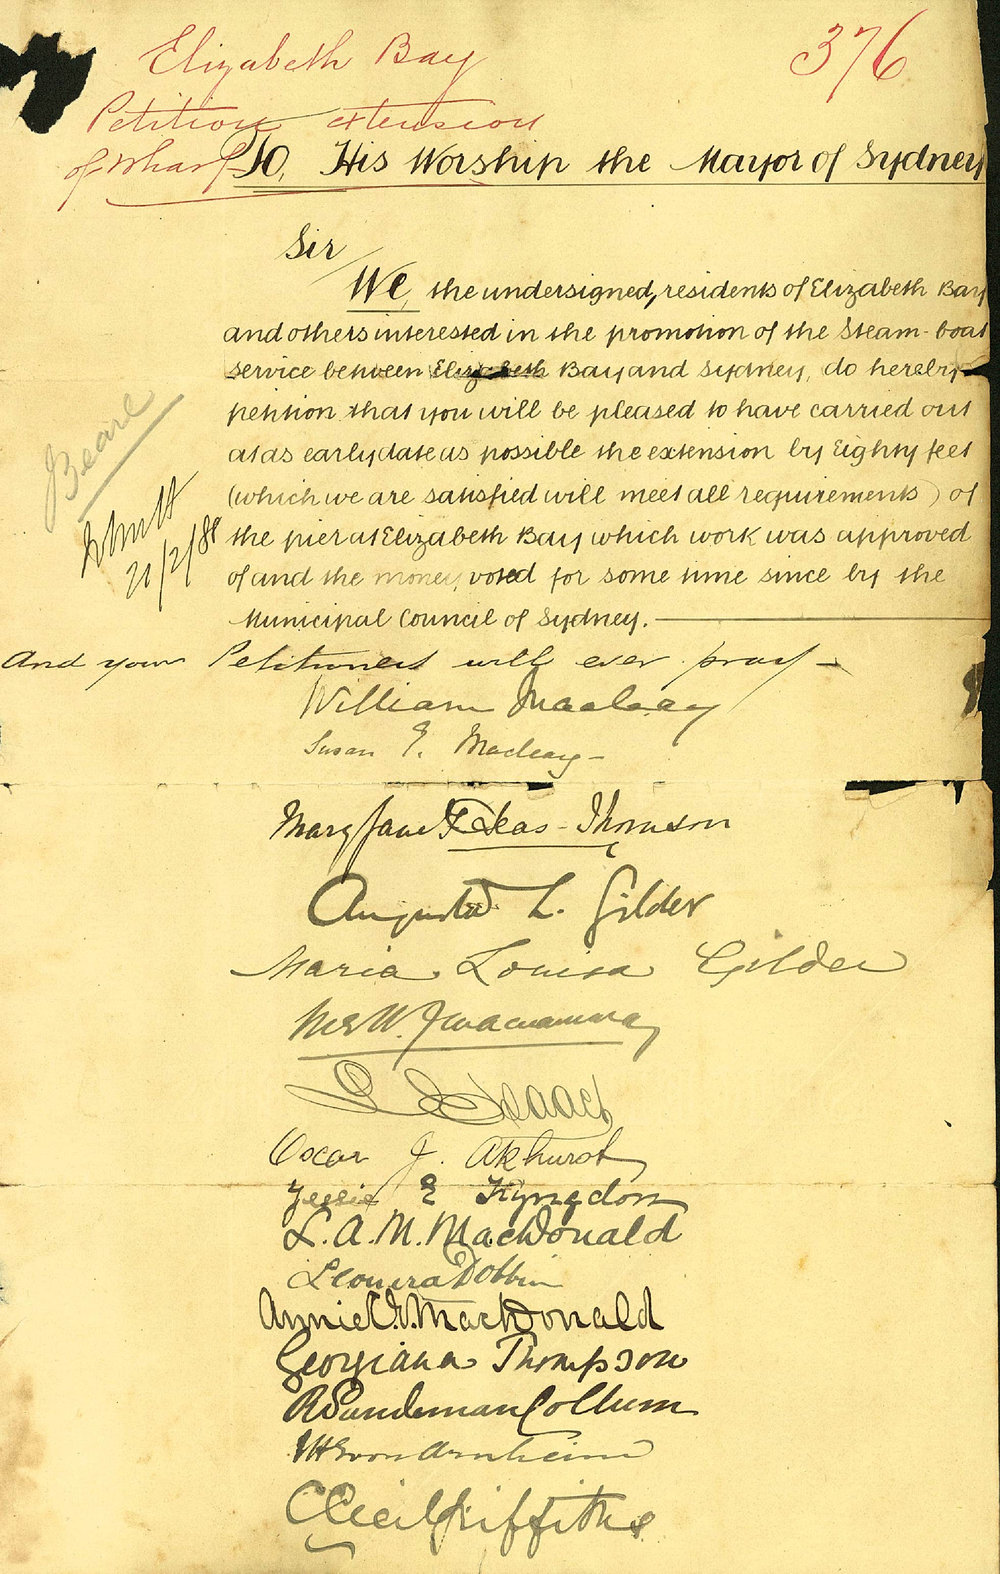 Elizabeth Bay
376
Petition extension
of Wharf
To, His Worship the Mayor of Sydney
Sir
We, the undersigned, residents of Elizabeth Bay
and others interested in the promotion of the Steam-boat
service between Elizabeth Bay and Sydney, do hereby
petition that you will be pleased to have carried out
at as early date as possible the extension by Eighty feet
(which we are satisfied will meet all requirements) of
the pier at Elizabeth Bay which work was approved
of and the money, voted for some time since by the
Municipal Council of Sydney.
21/2/88
And your Petitioners will ever pray
William Macleay
Susan E. Macleay
Mary Jane Deas-Thomson
Augusta L. Gilder
Maria Louisa Gilder
Mrs W. J. Macnamara
Isaacs
Oscar J. Akhurst
Jessie E Kyngdon
L. A. M. MacDonald
Leonora Dobbin
Annie MacDonald
Georgiana Thompson
R Sandeman Collum
von Arnheim
C Cecil Griffiths